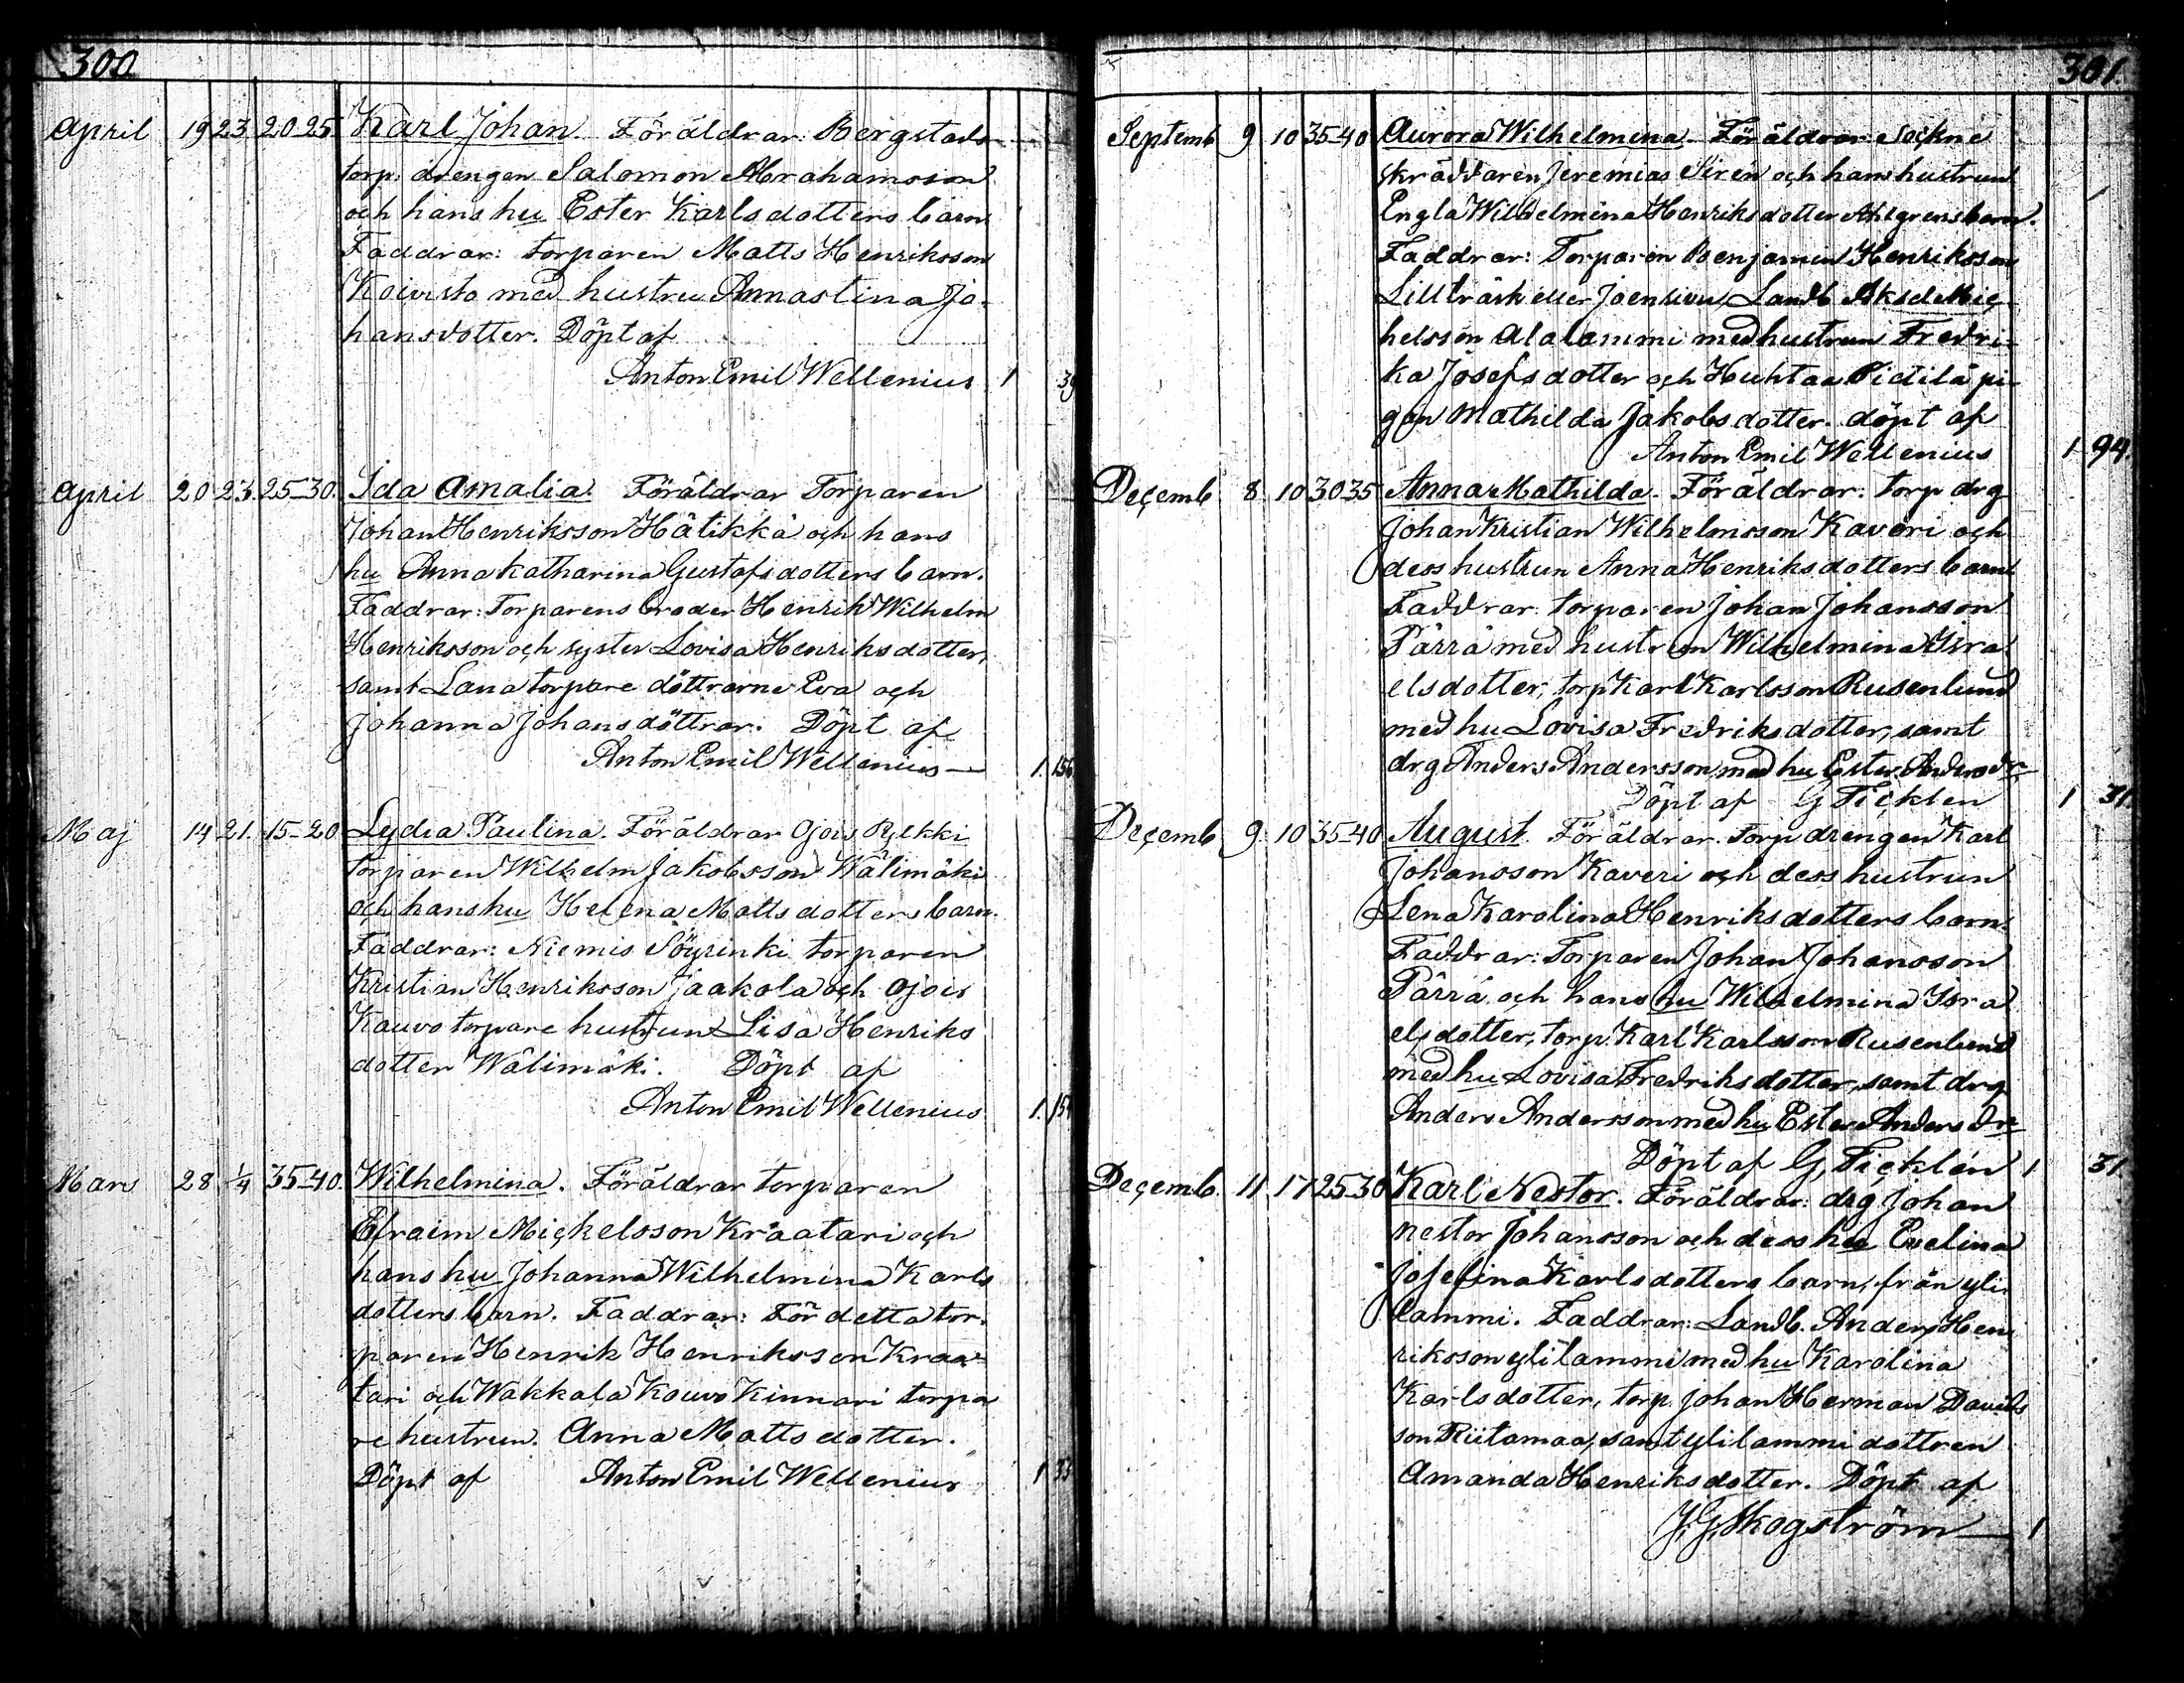 300
April 19 23 20-25 Karl Johan. Föräldrar: Bergstads
torp. drengen Salomon Abrahamsson
och hans hu Ester Karlsdotters barn.
Faddrar: torparen Matts Henriksson
Koivisto med hustru Annastina Jo-
hansdotter. Döpt af
Anton Emil Wellenius 1 39
April 20 23 25-30. Ida Amalia. Föräldrar Torparen
Johan Henriksson Hätikkä och hans
hu Anna Katharina Gustafsdotters barn.
Faddrar: Torparens broder Henrik Wilhelm
Henriksson och syster Lovisa Henriksdotter,
samt Lana torpare döttrarne Eva och
Johanna Johansdöttrar. Döpt af
Anton Emil Wellenius 1. 156
Maj 14 21. 15-20 Lydia Paulina. Föräldrar Ojois Pylkki
torparen Wilhelm Jakobsson Wälimäki
och hans hu Helena Mattsdotters barn.
Faddrar: Niemis Söyrinki torparen
Kristian Henriksson Jaakola och Ojois
Kauvo torpare hustrun Lisa Henriks
dotter Wälimäki. Döpt af
Anton Emil Wellenius 1. 154
Mars 28 1/4 35-40. Wilhelmina. Föräldrar torparen
Efraim Mickelsson Kraatari och
hans hu Johanna Wilhelmina Karls
dotters barn. Faddrar: För detta tor-
paren Henrik Henriksson Kraa-
tari och Wakkala Kouvo Kinnari torpa
re hustrun. Anna Mattsdotter.
Döpt af Anton Emil Wellenius 1 33
301.
Septemb 9 10 35-40 Aurora Wilhelmina. Föräldrar: Sockne
skräddaren Jeremias Sirén och hans hustrun
Engla Wilhelmina Henriksdotter Ahlgrens barn.
Faddrar: Torparen Benjamin Henriksson
Lillträsk eller Joensivu, Landb. Aksel Mic-
helsson Alalammi med hustrun Fredri-
ka Josefsdotter och Huhtaa Pietilä pi-
gan Mathilda Jakobsdotter. döpt af
Anton Emil Wellenius 1 94
Decemb 8 10 30 35 Anna Mathilda. Föräldrar: torp drg
Johan Kristian Wilhelmsson Kaveri och
dess hustrun Anna Henriksdotters barn
Faddrar: torparen Johan Johansson
Pärrä med hustrun Wilhelmina Isra
elsdotter, torp Karl Karlsson Rusenlund
med hu Lovisa Fredriksdotter, samt
drg Anders Andersson med hu Ester Andersdr
Döpt af G Ticklen 1 31.
Decemb 9. 10 35-40 August. Föräldrar. torp drengen Karl
Johansson Kaveri och dess hustrun
Lena Karolina Henriksdotters barn:
Faddrar: Torparen Johan Johansson
Pärrä och hans hu Wilhelmina Isra
elsdotter, torp. Karl Karlsson Rusenlund
med hu Lovisa Fredriksdotter, samt drg
Anders Andersson med hu Ester Andersdr
Döpt af G, Ticklén 1 31.
Decemb. 11. 17 25-30 Karl Nestor. Föräldrar: drg Johan
Nestor Johansson och dess hu Evelina
Josefina Karlsdotters barn, från yli
lammi. Faddrar: Landb. Anders Hen
riksson ylilammi med hu Karolina
Karlsdotter, torp. Johan Herman Davids
son Riitamaa, samt ylilammi dottren
Amanda Henriksdotter. Döpt af
J, G, Skogström 1